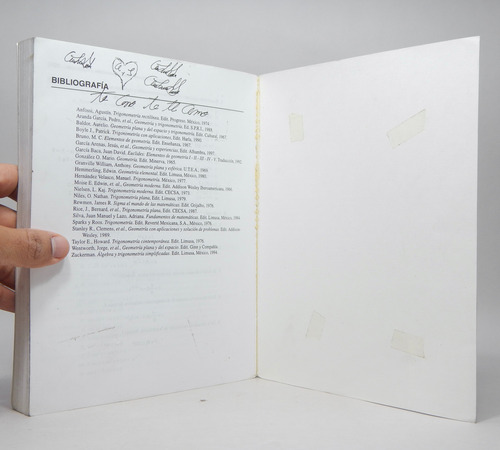 BIBLIOGRAFÍA
Anfossi, Agustín. Trigonometría rectilínea. Edit. Progreso. México, 1974
Aranda García, Pedro, et al., Geometría y trigonometría. Ed. S.F.R.L. 1988.
Baldor, Aurelio. Geometría plana y del espacio y trigonometría. Edit. Cultural, 1967.
Boyle J., Patrick. Trigonometría con aplicaciones. Edit. Harla, 1990.
Bruno, M. C. Elementos de geometría. Edit. Enseñanza, 1967.
García Arenas, Jesús, et al., Geometría y experiencias. Edit. Alhambra, 1987.
García Baca, Juan David. Euclides: Elementos de geometría I - II - III - IV - V. Traducción. 1992.
González O. Mario. Geometría. Edit. Minerva, 1965.
Granville William, Anthony. Geometría plana y esférica. U.T.E.A., 1969.
Hemmerling, Edwin. Geometría elemental. Edit. Limusa, México, 1980.
Hernández Velasco, Manuel. Trigonometría. México, 1977
Moise E. Edwin, et al., Geometría moderna. Edit. Addison Wesley Iberoamericana, 1986.
Nielsen, L. Kaj. Trigonometría moderna. Edit. CECSA, 1973.
Niles, O. Nathan. Trigonometría plana. Edit. Limusa, 1979
Newman, James R. Sigma el mundo de las matemáticas. Edit. Grijalbo, 1976.
Rice, J., Bernard, et al., Trigonometría plana. Edit. CECSA, 1987.
Silva, Juan Manuel y Lazo, Adriana. Fundamentos de matemáticas. Edit. Limusa, México, 1994
Sparks y Rees. Trigonometría. Edit. Reverté Mexicana, S.A., México, 1978.
Stanley R., Clemens, et al., Geometría con aplicaciones y solución de problemas. Edit. Addison
Wesley, 1989.
Taylor E., Howard. Trigonometría contemporánea. Edit. Limusa, 1978.
Wentworth, Jorge, et al., Geometría plana y del espacio. Edit. Ginn y Compañía.
Zuckerman. Álgebra y trigonometría simplificadas. Edit. Limusa, México, 1994